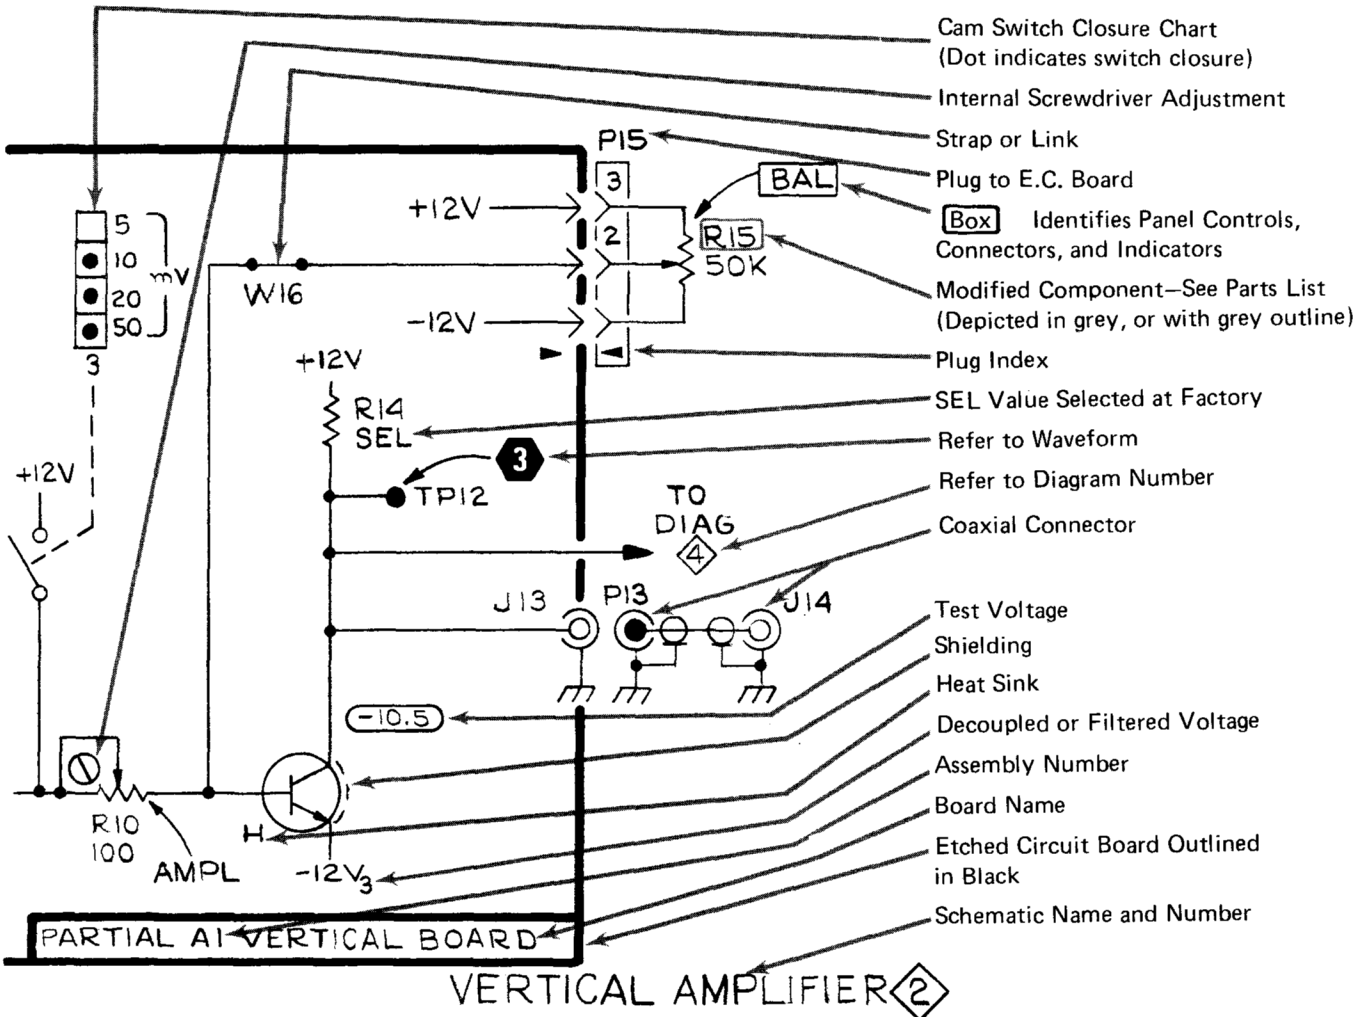 Cam Switch Closure Chart
(Dot indicates switch closure)
Internal Screwdriver Adjustment
Strap or Link
Plug to E.C. Board
Box Identifies Panel Controls,
Connectors, and Indicators
Modified Component—See Parts List
(Depicted in grey, or with grey outline)
Plug Index
SEL Value Selected at Factory
Refer to Waveform
Refer to Diagram Number
Coaxial Connector
Test Voltage
Shielding
Heat Sink
Decoupled or Filtered Voltage
Assembly Number
Board Name
Etched Circuit Board Outlined
in Black
Schematic Name and Number
P15
3
BAL
+12V
2
R15
50K
5
10
20
50
mV
3
W16
-12V
+12V
R14
SEL
3
TP12
+12V
TO
DIAG
4
J13
P13
J14
-10.5
R10
100
AMPL
H
-12V3
PARTIAL A1 VERTICAL BOARD
VERTICAL AMPLIFIER 2